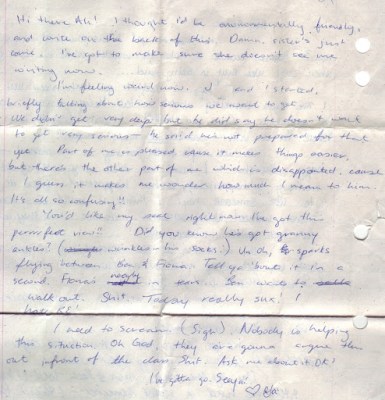 Hi there Ali! I thought I'd be environmentally friendly,
and write on the back of this. Damn, sister's just
come. I've got to make sure she doesn't see me
writing now.
I'm feeling weird now. N. and I started
briefly talking about how serious we want to get.
We didn't get very deep but he did say he doesn't want
to get very serious - he said he's not prepared for that
yet. Part of me is pleased, cause it makes things easier,
but there's the other part of me which is disappointed, cause
I guess it makes me wonder how much I mean to him.
It's all so confusing!!
You'd like my seat right now. I've got the
perrrfect view!! Did you know he's got granny
ankles? ( wrinkles in his socks.) Uh oh, sports
flying between Ben & Fiona. Tell you 'bout it in a
second. Fiona's nearly in tears. Ben wants to
walk out. Shit. Today really sux!! I
hate RE!
I need to scream (Sigh). Nobody is helping
this situation. Oh God, they are gonna argue then
out infront of the class. Shit. Ask me about it OK!
I've gotta go. Seeya.